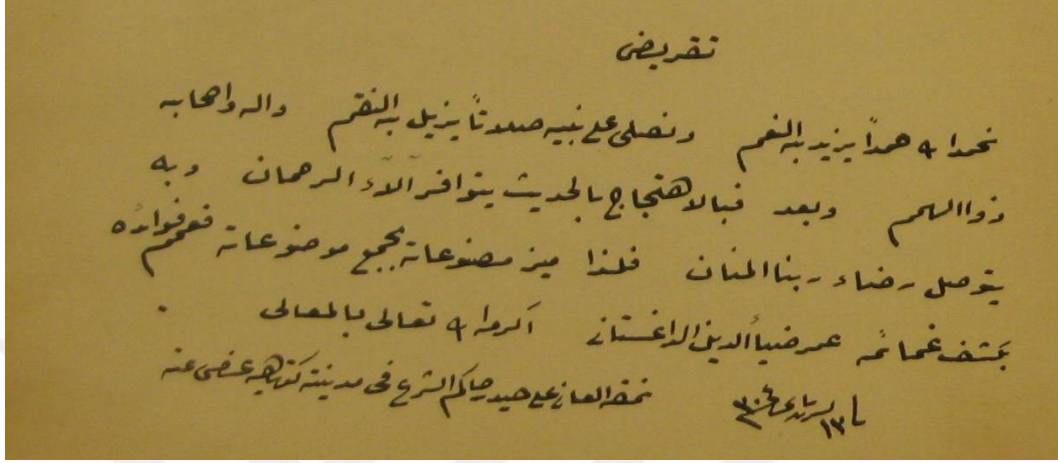 تقريض
نحمد الله حمداً يزيد به النعم ونصلى على نبيه صلاتاً يزيل به النقم واله واصحابه
ذوا الهمم وبعد فبالاحتجاج بالحديث يتوافر آلاء الرحمان وبه
يتوصل رضاء ربنا المنان فلذا ميز مصنوعاته بجمع موضوعاته فعمم فوائده
بكشف غمائمه عمر ضياء الدين الداغستانى اكرمه الله تعالى بالمعالى
نمقه الفانى على حيدر حاكم الشرع فى مدينة كوتاهيه عفى عنه
١٣